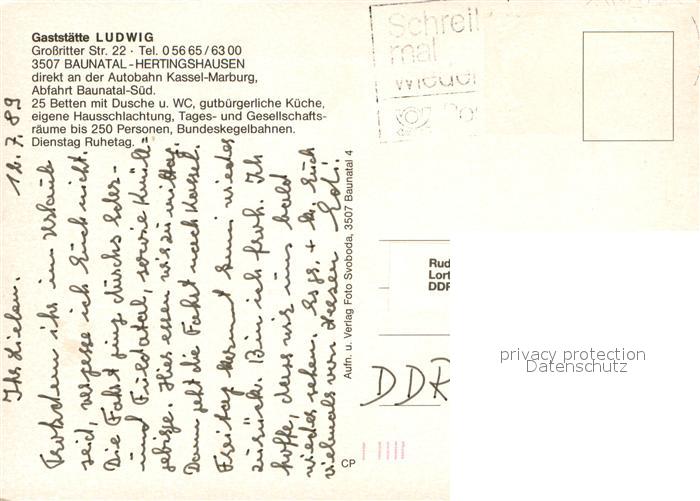 Gaststätte LUDWIG
Großritter Str. 22 · Tel. 0 56 65 / 63 00
3507 BAUNATAL-HERTINGSHAUSEN
direkt an der Autobahn Kassel-Marburg,
Abfahrt Baunatal-Süd.
25 Betten mit Dusche u. WC, gutbürgerliche Küche,
eigene Hausschlachtung, Tages- und Gesellschafts-
räume bis 250 Personen, Bundeskegelbahnen.
Dienstag Ruhetag.
Ihr Lieben. 16.7.89
Trotzdem ihr im Urlaub
seid, vergesse ich Euch nicht.
Die Fahrt ging durchs Eder-
und Fuldatal, sowie Knüll-
gebirge. Hier essen wir zu mittag.
Dann geht die Fahrt nach Kassel.
Freitag kommt wieder
zurück. Bin ich froh. Ich
hoffe, dass wir uns bald
wieder sehen. Es gr. + k. Euch
vielmals von Herzen
Aufn. u. Verlag Foto Svoboda, 3507 Baunatal 4
CP
Schreib
mal
wieder
Rud
Lort
DDR
DDR
privacy protection
Datenschutz